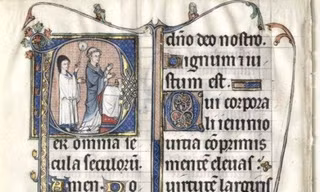 er omnia se
cula seculorū.
men. Do
dño deo nostro.
Dignum iu
stum est.
Qui corpora
li ieiunio
uitia cōprimis
mentē eleuas
uirtutē largiris